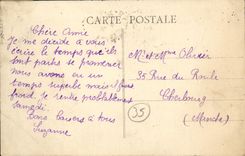 CARTE POSTALE
Chère Amie
Je me décide à vous
écrire le temps que ils
sont partis se promener
nous avons eu un
temps superbe mais il fait
froid. Je rentre probablement
samedi.
Bons baisers à tous
Suzanne
Mr et Mme Olivier
35 Rue du Roule
Cherbourg
(Manche)
35